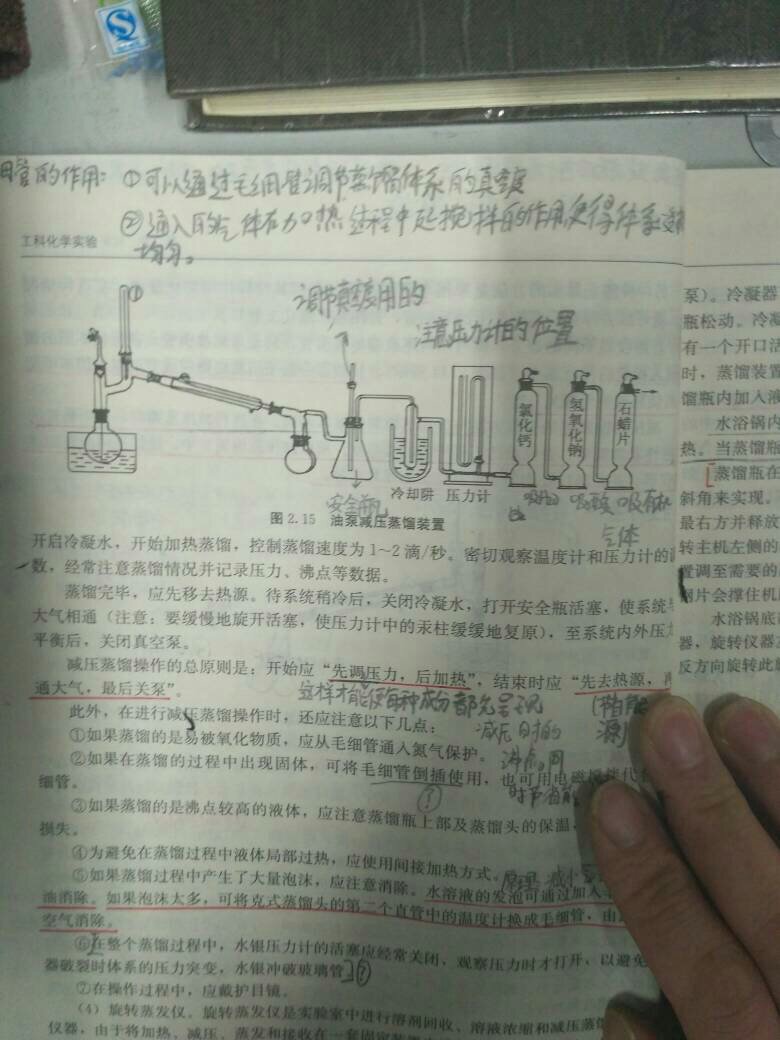 管的作用：①可以通过毛细管调节蒸馏体系的真空度
②通入的气体在加热过程中起搅拌的作用，使得体系受热
均匀。
工科化学实验
①
调节真空度用的
注意压力计的位置
氯化钙
氢氧化钠
石蜡片
冷却阱 压力计
安全瓶
吸酸
图 2.15 油泵减压蒸馏装置
气体
开启冷凝水，开始加热蒸馏，控制蒸馏速度为 1~2 滴/秒。密切观察温度计和压力计的
数，经常注意蒸馏情况并记录压力、沸点等数据。
蒸馏完毕，应先移去热源。待系统稍冷后，关闭冷凝水，打开安全瓶活塞，使系统
大气相通（注意：要缓慢地旋开活塞，使压力计中的汞柱缓缓地复原），至系统内外压
平衡后，关闭真空泵。
减压蒸馏操作的总原则是：开始应“先调压力，后加热”，结束时应“先去热源，
通大气，最后关泵”。
此外，在进行减压蒸馏操作时，还应注意以下几点：
①如果蒸馏的是易被氧化物质，应从毛细管通入氮气保护。
②如果在蒸馏的过程中出现固体，可将毛细管倒插使用，也可用电磁搅拌代
细管。
③如果蒸馏的是沸点较高的液体，应注意蒸馏瓶上部及蒸馏头的保温，
损失。
④为避免在蒸馏过程中液体局部过热，应使用间接加热方式。
⑤如果蒸馏过程中产生了大量泡沫，应注意消除。水溶液的发泡可通过加入
油消除。如果泡沫太多，可将克式蒸馏头的第二个直管中的温度计换成毛细管，由
空气消除。
⑥在整个蒸馏过程中，水银压力计的活塞应经常关闭，观察压力时才打开，以避免
器破裂时体系的压力突变，水银冲破玻璃管
⑦在操作过程中，应戴护目镜。
（4）旋转蒸发仪。旋转蒸发仪是实验室中进行溶剂回收、溶液浓缩和减压蒸
仪器，由于将加热、减压、蒸发和接收在一套
泵）。冷凝器
瓶松动。冷凝
有一个开口活
时，蒸馏装置
馏瓶内加入液
水浴锅内
热。当蒸馏瓶
蒸馏瓶在
斜角来实现。
最右方并释放
转主机左侧的
置调至需要的
钢片会撑住机
水浴锅底
器，旋转仪器
反方向旋转此